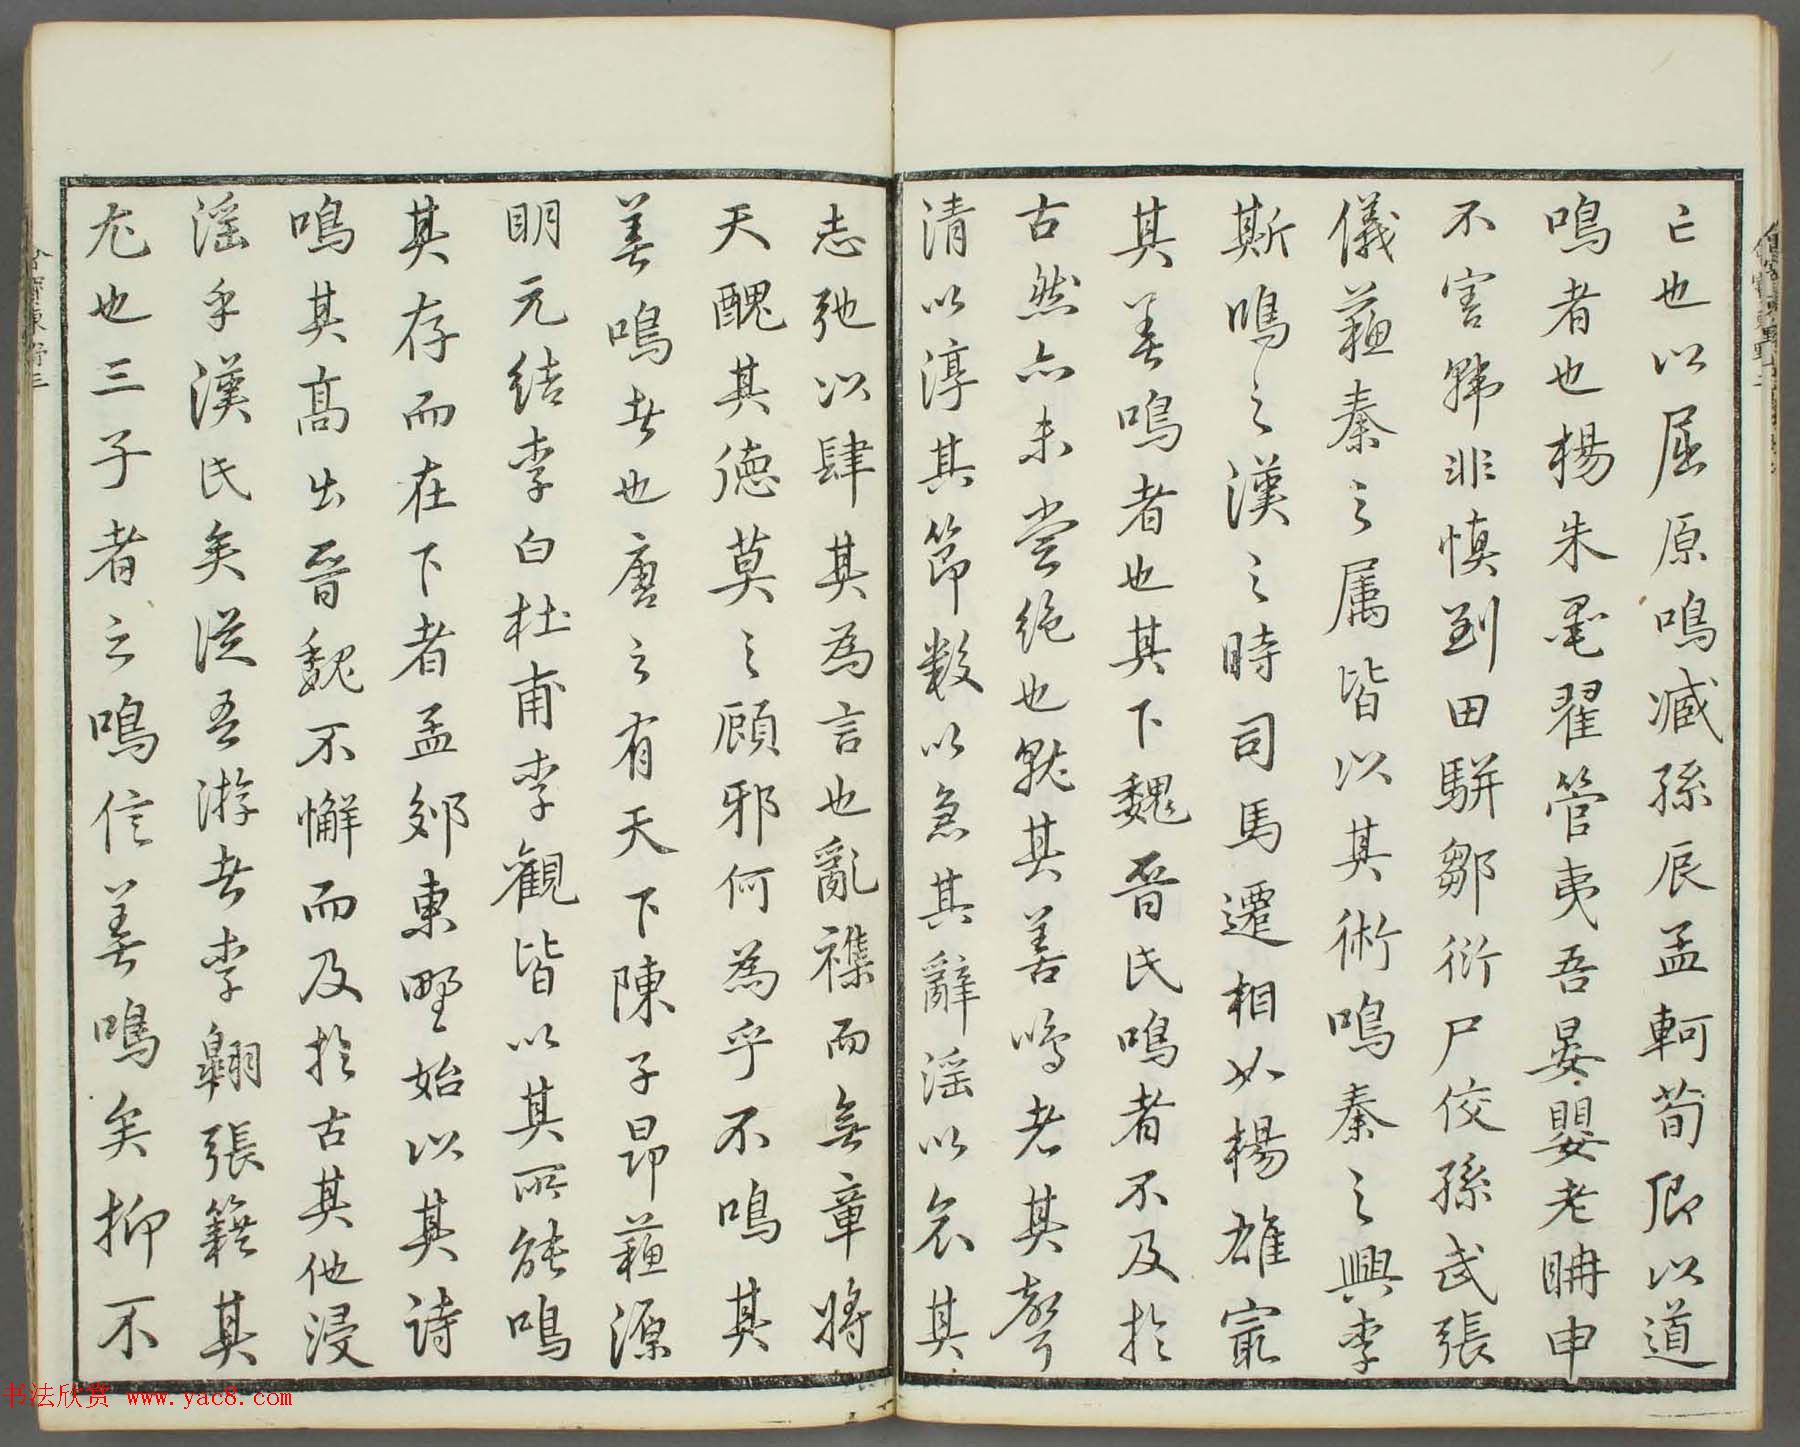 亡也以屈原鳴臧孫辰孟軻荀卿以道
鳴者也楊朱墨翟管夷吾晏嬰老聃申
不害韓非慎到田駢鄒衍尸佼孫武張
儀蘇秦之屬皆以其術鳴秦之興李
斯鳴之漢之時司馬遷相如楊雄冣
其善鳴者也其下魏晉氏鳴者不及於
古然亦未嘗絕也就其善鳴者其聲
清以淳其節數以急其辭淫以哀其
志弛以肆其為言也亂襍而無章將
天醜其德莫之顧邪何為乎不鳴其
善鳴者也唐之有天下陳子昂蘇源
明元結李白杜甫李觀皆以其所能鳴
其存而在下者孟郊東野始以其詩
鳴其高出晉魏不懈而及於古其他浸
淫乎漢氏矣從吾游者李翱張籍其
尤也三子者之鳴信善鳴矣抑不
书法欣赏 www.yac8.com